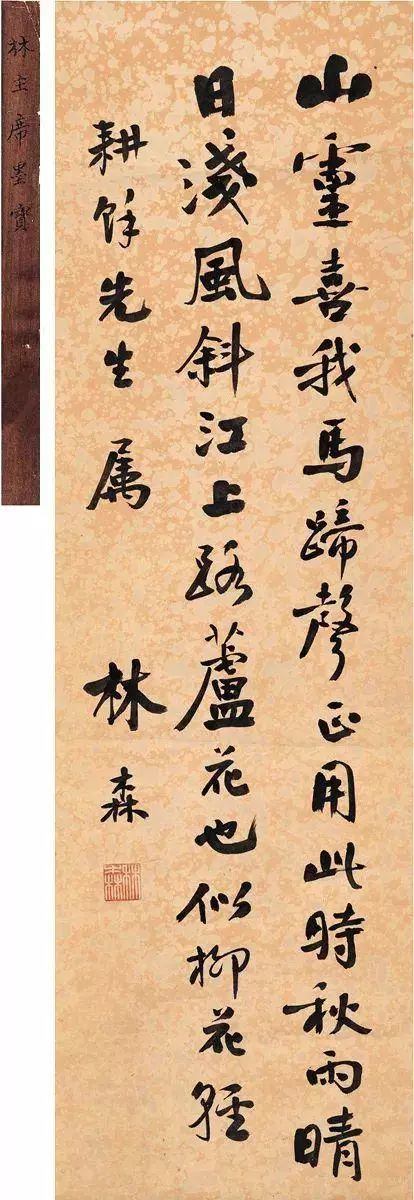 山靈喜我馬蹄聲正用此時秋雨晴
日淺風斜江上路蘆花也似柳花輕
耕餘先生属
林森
林主席墨寶